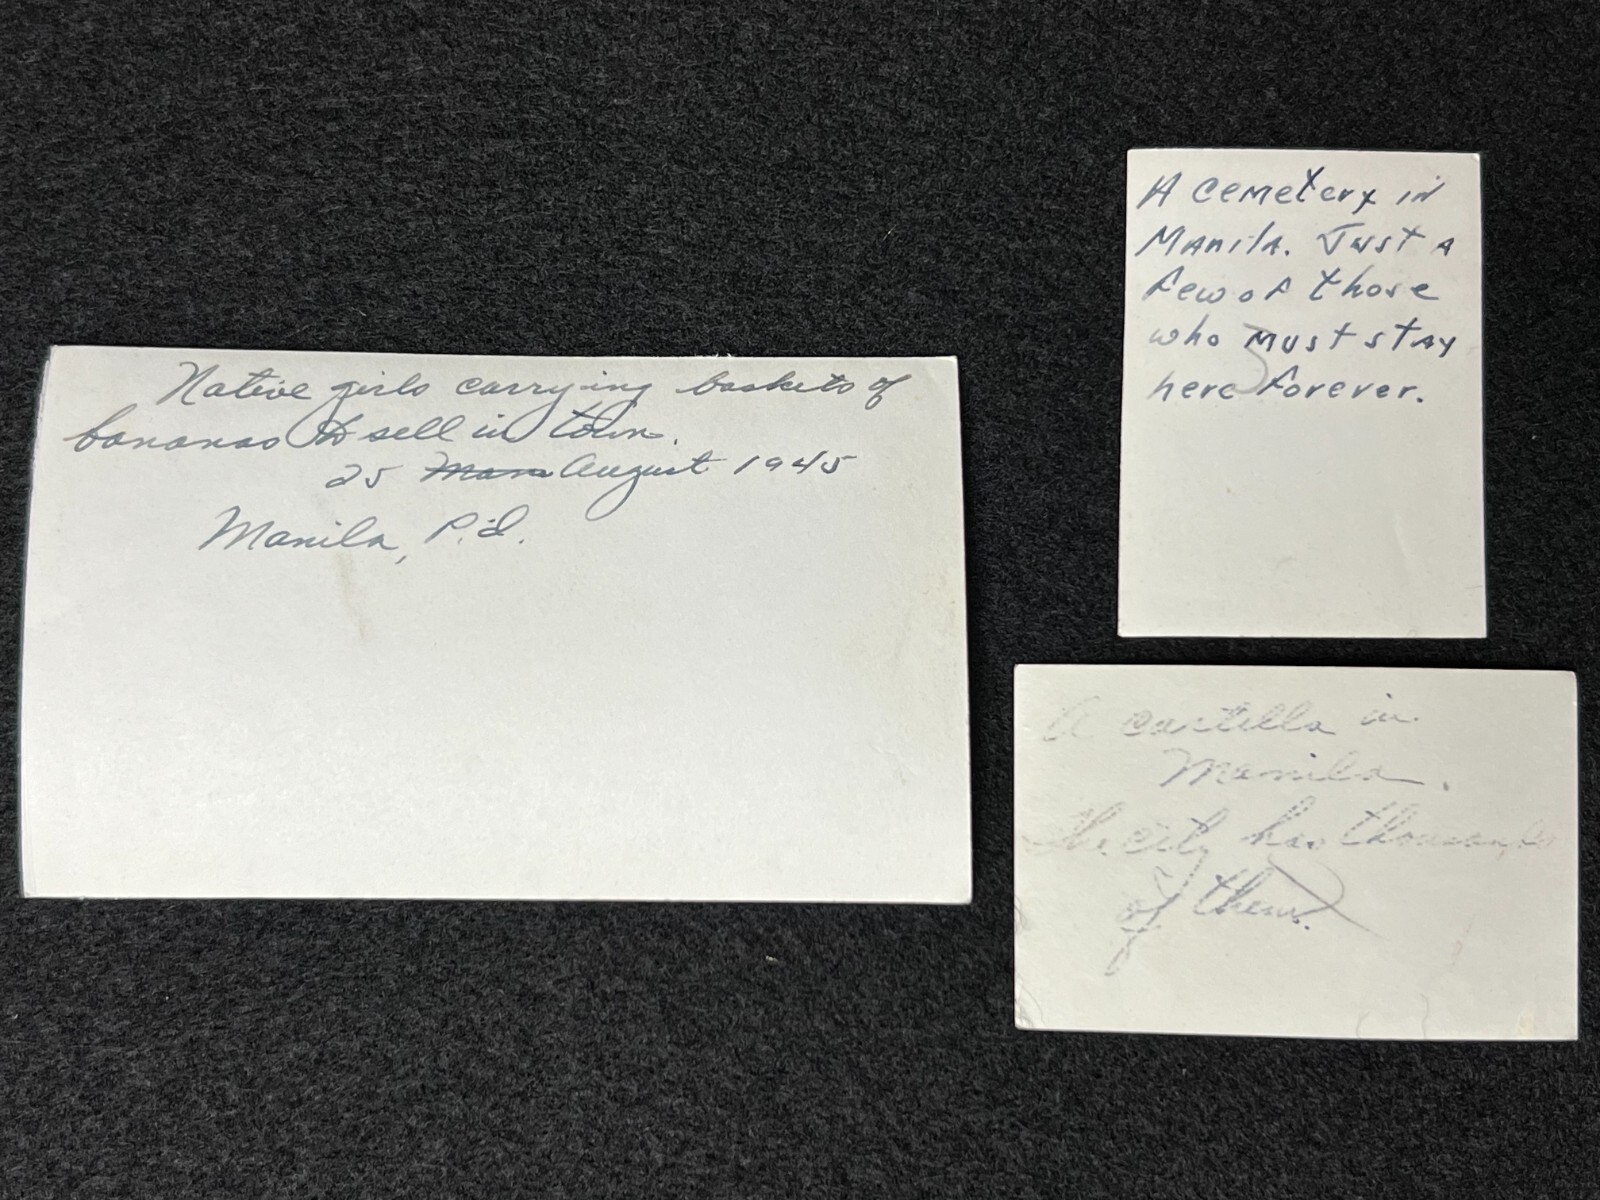 Native girls carrying baskets of
bananas to sell in town.
25 August 1945
Manila, P.I.
A cemetery in
Manila. Just a
few of those
who must stay
here forever.
A cartella in
Manila.
The city has thousands
of them.